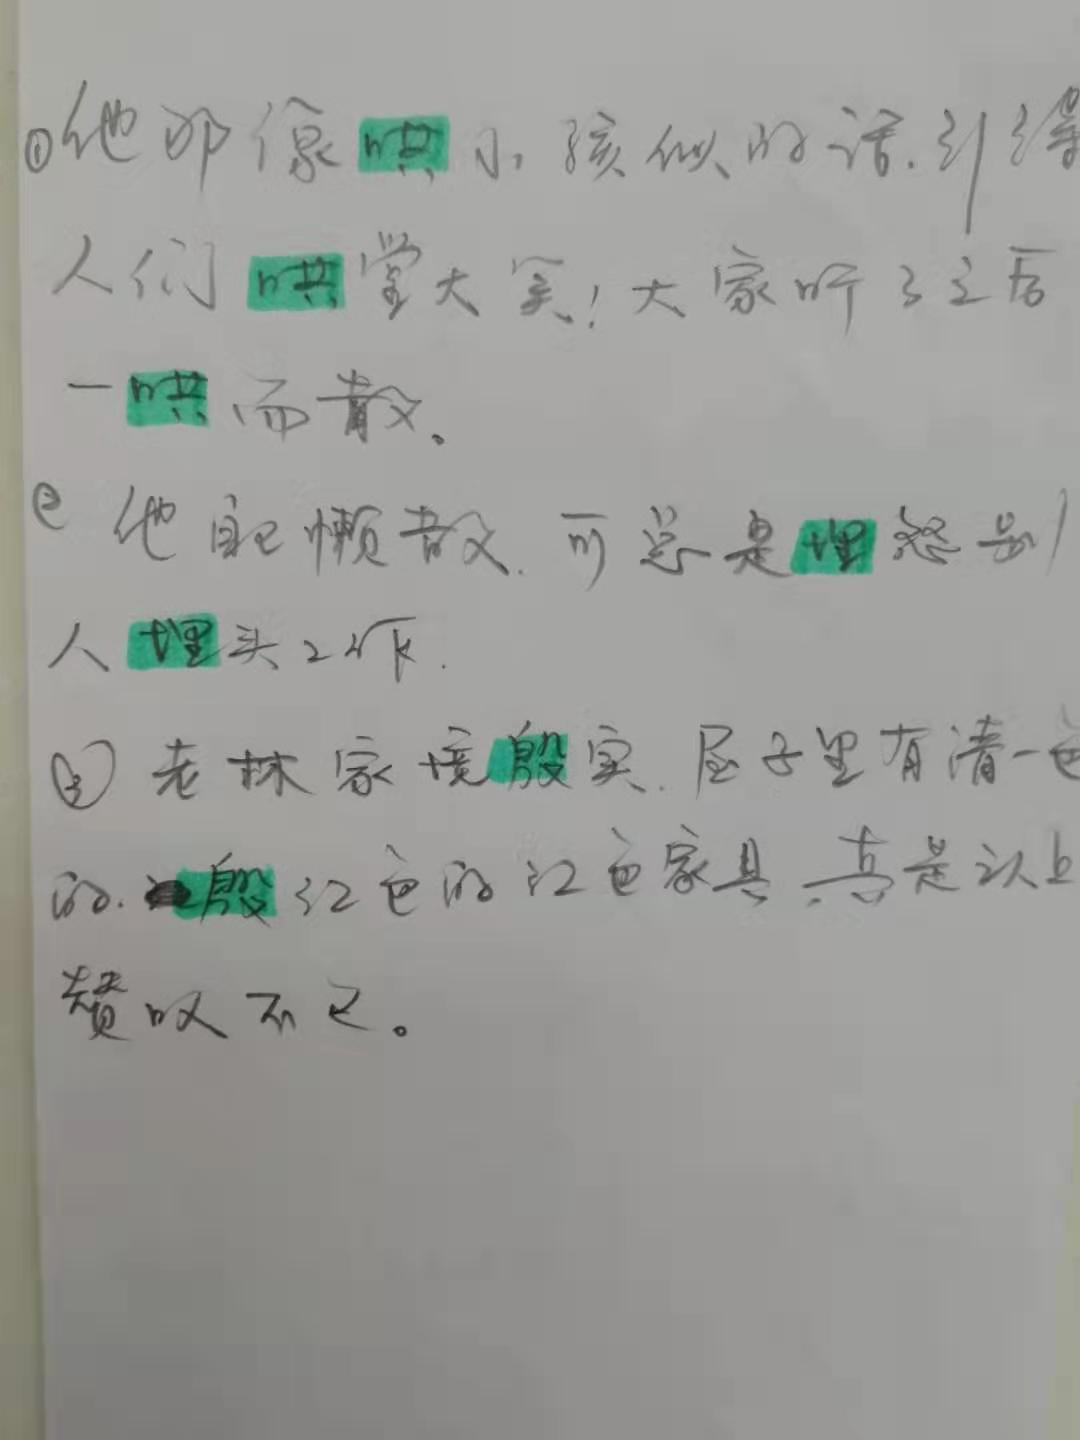 ①他那像哄小孩似的话.引得
人们哄堂大笑!大家听了之后
一哄而散。
② 他自己懒散.可总是埋怨别
人埋头工作.
③ 老林家境殷实.屋子里有清一色
的.殷红色的红色家具.真是让人
赞叹不已。